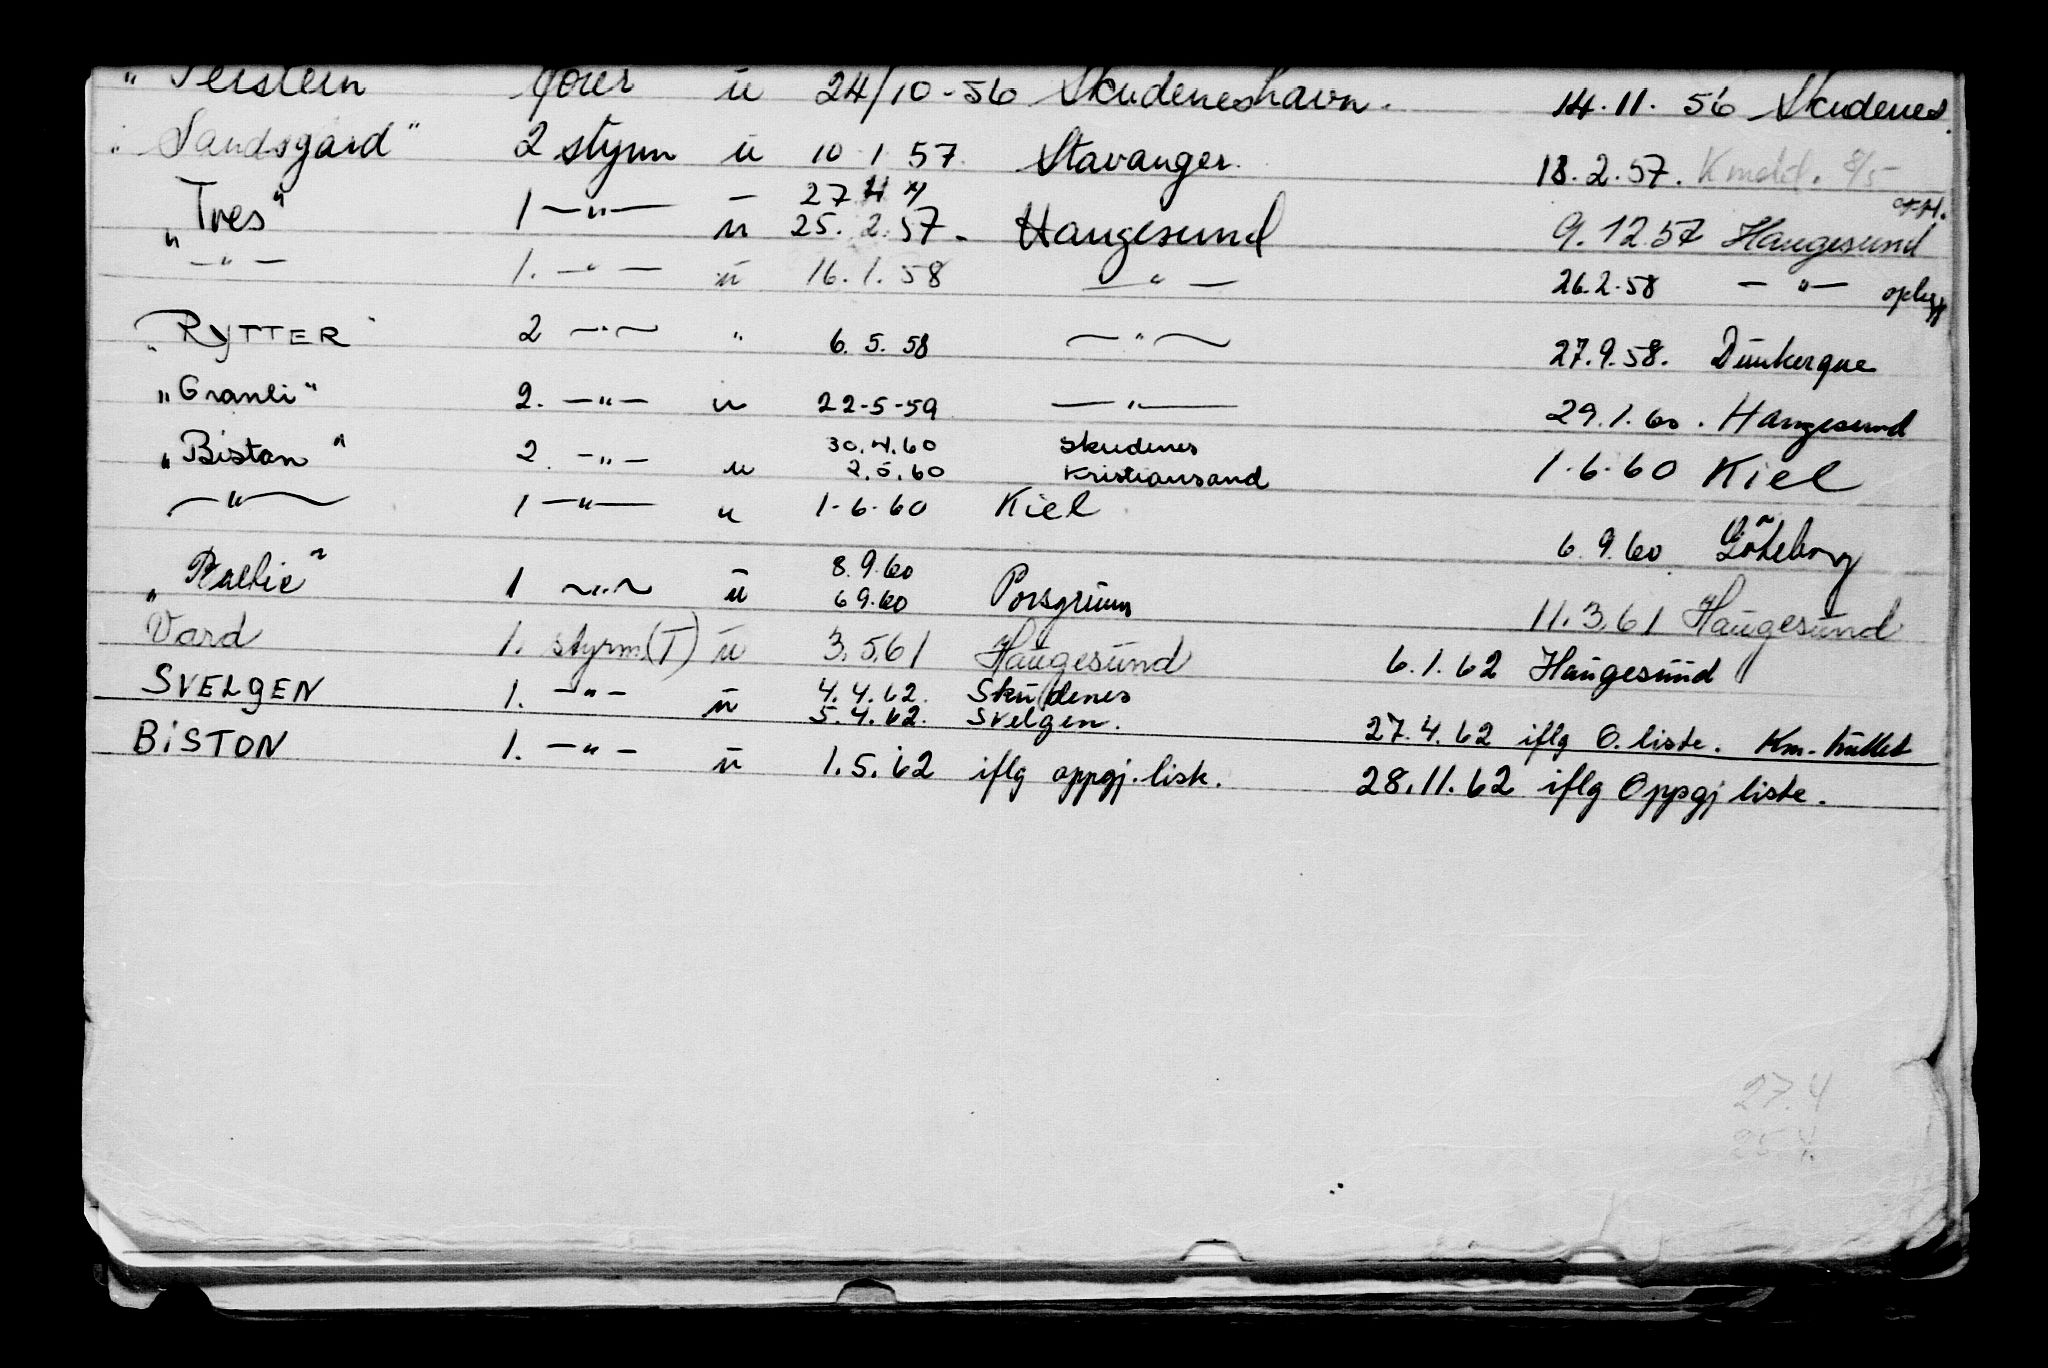 " Terstein Yöver u 24/10-56 Skudeneshavn. 14.11. 56 Skudenes.
" Sandsgård " 2 styrm u 10.1.57. Stavanger. 18.2.57. Kmdd. 8/5
27 4
" Tres " 1 — " — u 25.2.57. Haugesund 9.12.57 Haugesund
— " — 1. — " — u 16.1.58 — " — 26.2.58 — " — oplegg
" RYTTER " 2 — " — " 6.5.58 — " — 27.9.58. Dunkerque
" Granli " 2. — " — u 22-5-59 — " — 29.1.60. Haugesund
" Bistan " 2. — " — u 30.4.60 Skudenes
2.5.60 Kristiansand 1.6.60 Kiel
— " — 1 — " — u 1.6.60 Kiel 6.9.60 Göteborg
8.9.60
" Baltic " 1 — " — u 6.9.60 Porsgrunn 11.3.61 Haugesund
Vard 1. styrm.(T) u 3.5.61 Haugesund 6.1.62 Haugesund
SVELGEN 1. — " — u 4.4.62. Skudenes
5.4.62. Svelgen. 27.4.62 iflg O.liste. Km-hullet
BISTON 1. — " — u 1.5.62 iflg oppgj.liste. 28.11.62 iflg Oppgj liste.
27.4
25.4.